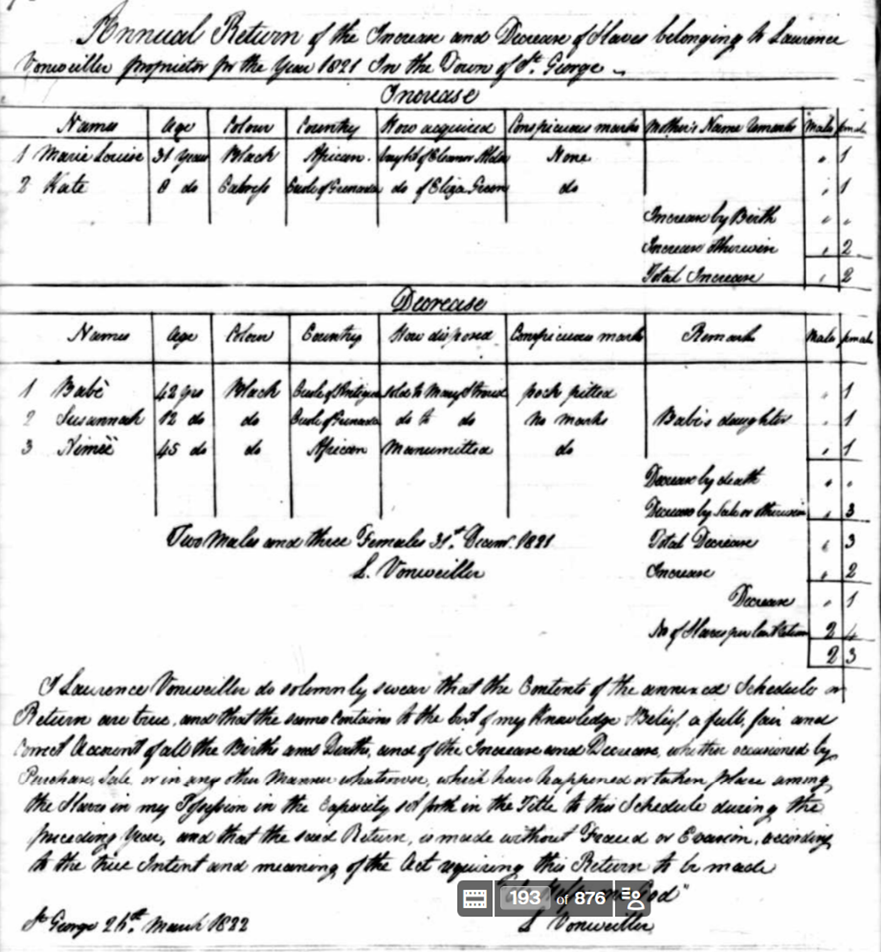 Annual Return of the Increase and Decrease of Slaves belonging to Laurence
Vonweiller proprietor for the Year 1821 In the Town of St. George
Increase
Names Age Colour Country How acquired Conspicuous marks Mother's Name Remarks Male female
1 Marie Louise 31 Years Black African bought of Eleanor None " 1
2 Kate 8 do Cabress Creole of Grenada do of Eliza Green do " 1
Increase by Birth " "
Increase otherwise " 2
Total Increase " 2
Decrease
Names Age Colour Country How disposed Conspicuous marks Remarks Male female
1 Babè 42 yrs Black Creole of Antigua sold to Mary pock pitted " 1
2 Susannah 12 do do Creole of Grenada do to do no marks Babè's daughter " 1
3 45 do do African Manumitted do " 1
Decrease by death " "
Decrease by Sale or otherwise " 3
Two Males and three Females 31st Decemr. 1821 Total Decrease " 3
L. Vonweiller Increase " 2
Decrease " 1
No of Slaves per last Return 2 4
2 3
I Laurence Vonweiller do solemnly swear that the Contents of the annexed Schedule or
Return are true, and that the same contains to the best of my Knowledge & Belief, a full, fair and
Correct Account of all the Births and Deaths, and of the Increase and Decrease, whether occasioned by
Purchase, Sale, or in any other Manner whatsoever, which have happened or taken place among
the Slaves in my Possession in the Capacity set forth in the Title to this Schedule during the
preceding Year, and that the said Return, is made without Fraud or Evasion, according
to the true Intent and meaning of the Act requiring this Return to be made
God"
193 of 876
St George March 1822 L Vonweiller